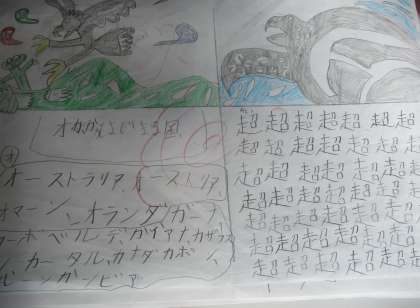 オかからはじまる国
オ
オーストラリア、オーストリア、
オマーン、オランダ、ガーナ、
カーボベルデ、ガイアナ、カザフス
カタール、カナダ、ガボン、
ルーン、ガンビア
超超超超超超超
超超超超超超超
超超超超超超
超超超超超超超
超超超超超超超
超超超超超超超
超超超超超超超